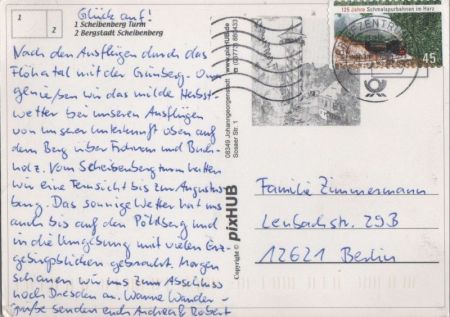 1
2
Glück auf!
1 Scheibenberg Turm
2 Bergstadt Scheibenberg
Nach den Ausflügen durch das
Flöhatal mit der Grünberg-
genießen wir das milde Herbst-
wetter bei unseren Ausflügen
von unserer Unterkunft oben auf
dem Berg über Frohnau und Buch-
holz. Vom Scheibenbergturm hatten
wir eine Fernsicht bis zur Augustus-
burg. Das sonnige Wetter hat uns
auch bis auf den Pöhlberg und
in die Umgebung mit vielen Erz-
gebirgsblicken gebracht. Morgen
schauen wir uns zum Abschluss
noch Dresden an. Warme Wander-
grüße senden euch Andrea & Robert
Copyright © pixHUB
08349 Johanngeorgenstadt
Sosaer Str. 1
125 Jahre Schmalspurbahnen im Harz
45
BRIEFZENTRUM
Familie Zimmermann
Lenbachstr. 29B
12621 Berlin